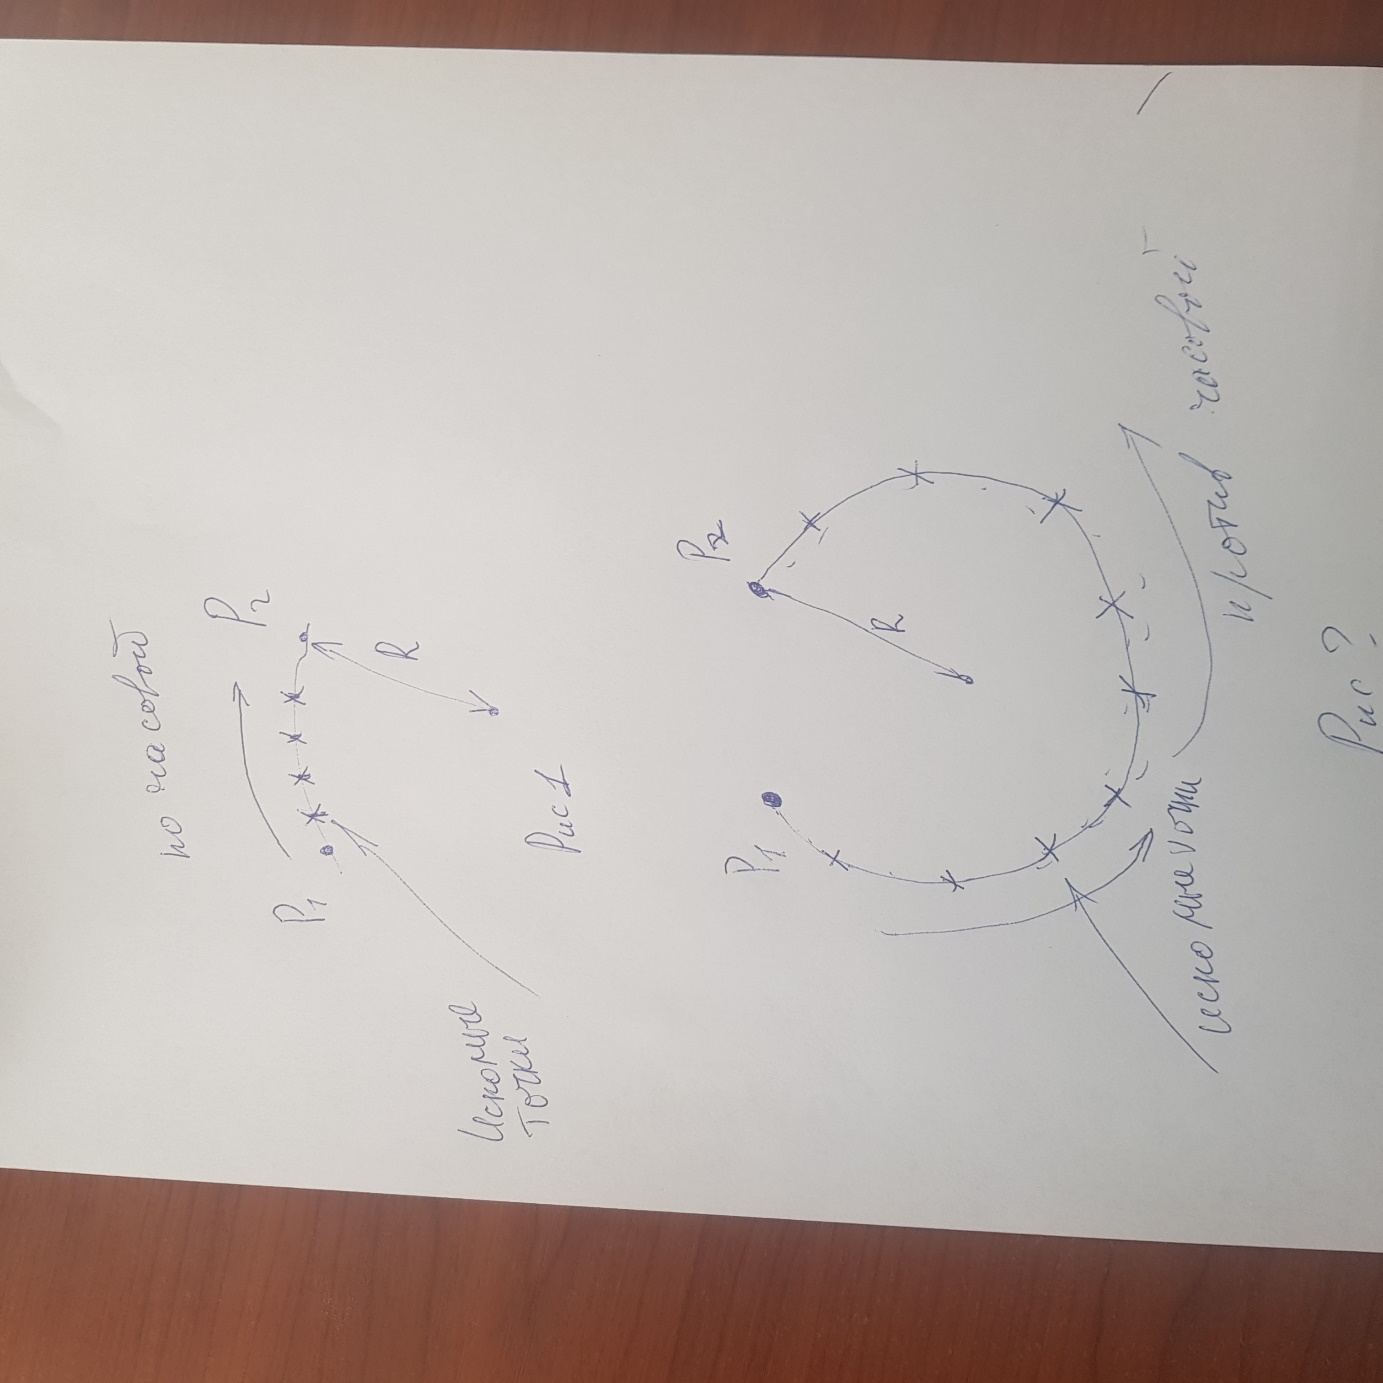 по часовой
P1
P2
R
Искомые
точки
Рис 1
P1
P2
R
искомые точки
против часовой
Рис 2